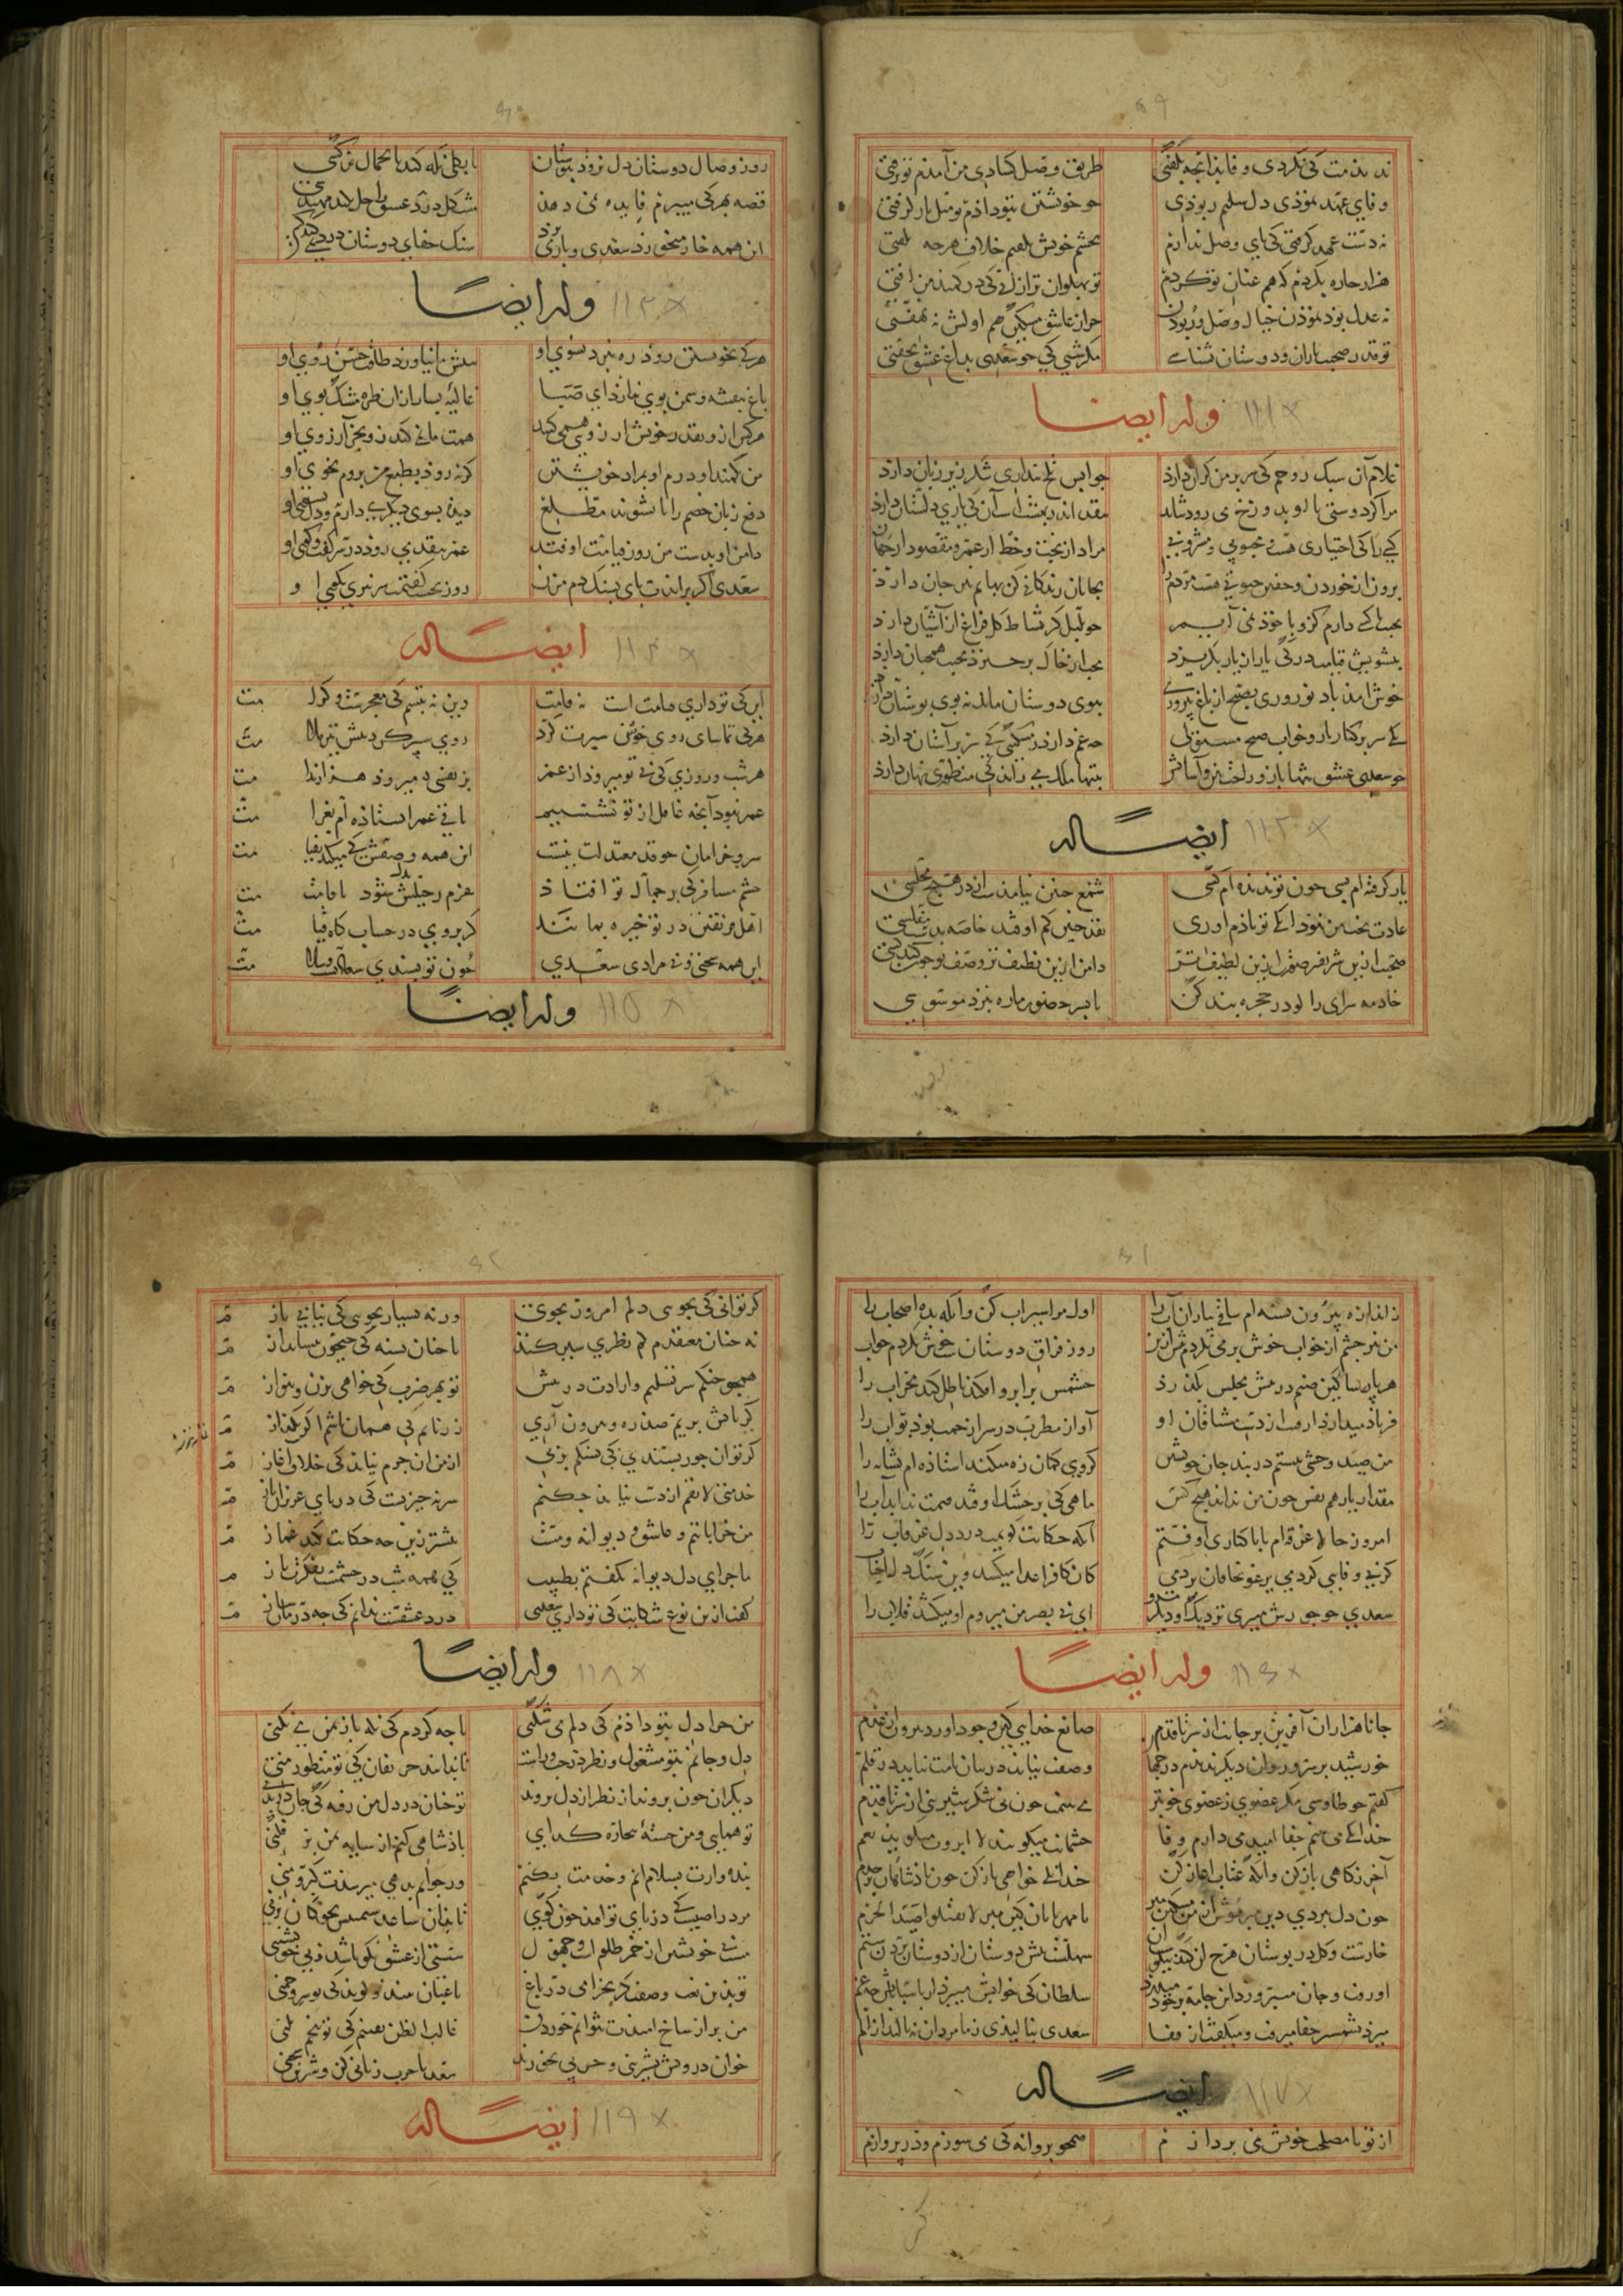 ۵۹
ندیدمت کی نکردی وفا بذانچه بگفتی طریق وصل کشادی من آمذم تو برفتی
وفای عهد نموذی دل سلیم ربوذی جو خویشتن بتو داذم تو میل باز گرفتی
نه دست عهد گرفتی کی پای وصل ندارم بچشم خویش بدیدم خلاف هرچه بگفتی
هزار چاره بکردم که هم عنان تو گردم تو پهلوان تر ازانی کی در کمند من افتی
نه عدل بوذ نموذن خیال وصل و ربوذن چرا ز عاشق مسکین هم اولش نه بهفتی
تو قدر صحبت یاران و دوستان نشناسی مگر شبی کی جو سعدی بداغ عشق بخفتی
وله ایضا ۱۱۱
غلام آن سبک روحم کی سر بر من گران دارذ جوابش تلخ پنداری شکر زیر زبان دارذ
مرا گر دوستی با او بدوزخ می برذ شایذ بنقد اندر بهشتست آن کی یاری دلستان دارذ
کسی را کی اختیاری هست و محبوبی و مشروبی مراد از بخت و حظ از عمر و مقصود از جهان دارذ
برون از خوردن و خفتن حیوتی هست مردم را بجانان زندگانی کن بهایم نیز جان دارذ
محبت با کسی دارم کزو با خوذ نمی آیم جو بلبل کز نشاط گل فراغ از آشیان دارذ
بتشویش قیامت در کی یار از یار بگریزد محب از خاک برخیزد محبت همچنان دارذ
خوش آمذ باد نوروزی بصبح از باغ پیروزی ببوی دوستان ماند نه بوی بوستان دارذ
کی سر بر کنار یار و خواب صبح مستولی چه غم دارذ ز مسکینی کی سر بر آستان دارذ
جو سعدی عشق تنها باز و راحت بین و آسایش بتنها ملک می راند کی منظوری نهان دارذ
ایضا له ۱۱۲
یار گرفته ام بسی جون تو ندیده ام کسی شمع جنین نیامذست از در هیچ مجلسی
عادت بخت من نبوذ آنک تو یاذم آوری نقد جنین کم اوفتد خاصه بدست مفلسی
صحبت ازین شریفتر صورت ازین لطیفتر دامن ازین نظیفتر وصف تو جون کند کسی
خادمه سرای را گو در حجره بند کن تا بسر حضور ما ره نبرذ موسوسی
۶۰
روز وصال دوستان دل نروذ ببوستان یا بگلی نگه کند با جمال نرگسی
قصه بهر کی میبرم فایده نمی دهذ مشکل درد عشق را حل نکند مهندسی
این همه خار میخورذ سعدی و بار می برذ سنک جفای دوستان درد نمی کند بسی
وله ایضا ۱۱۳
هر کی بخویشتن روذ ره نبرد بسوی او بینش ما نیاورد طاقت حسن روی او
باغ بنفشه و سمن بوی ندارذ ای صبا غالیه بساز ازان طره مشک بوی او
هر کس ازو بقدر خویش آرزویی همی کنند همت ما نمی کند زو بجز آرزوی او
من بکمند او درم او بمراد خویشتن گر نه روذ بطبع من بروم بخوی او
دفع زبان خصم را تا نشوند مطلع دیده بسوی دیگری دارم و دل بسوی او
دامن او بدست من روز قیامت اوفتد عمر بنقد می روذ در سر گفت و گوی او
سعدی اگر براندت پای بسنک دم مزن روز نخست گفتمت سر نبری ز کوی او
ایضا له ۱۱۴
این کی تو داری قیامت است نه قامت وین نه تبسم کی معجزست و کرامت
هر کی تماشای روی خوب سیرت کرد روی سپر کرد پیش تیر ملامت
هر شب و روزی کی بی تو میروذ از عمر بر نفسی میروذ هزار ندامت
عمر نبوذ آنچه غافل از تو نشستم باقی عمر استاذه ام بغرامت
سرو خرامان جو قد معتدلت نیست این همه وصفش کی میکند بقامت
چشم مسافر کی بر جمال تو افتاذ عزم رحیلش بدل شوذ باقامت
اهل فریقین در تو خیره بمانند گر بروی در حساب گاه قیامت
این همه سختی و نامرادی سعدی جون تو پسندی سعادتست و سلامت
وله ایضا ۱۱۵
۶۱
ز اندازه بیرون تشنه ام ساقی بیار آن آب را اول مرا سیراب کن وانکه بده اصحاب را
من نیز چشم از خواب خوش بر می نکردم پیش ازین روز فراق دوستان شب خوش بگفتم خواب را
هر پارسا را کین صنم در پیش مجلس بگذرذ چشمش بر ابرو افکند باطل کند محراب را
فریاذ میدارذ رقیب از دست مشتاقان او آواز مطرب در سرا زحمت بوذ بواب را
من صید وحشی نیستم در بند جان خویش گر وی کمان زه میکند استاذه ام نشاب را
مقدار یار هم نفس جون من نداند هیچ کس ماهی کی بر خشک اوفتد قیمت بداند آب را
امروز حالا غرقه ام تا با کناری اوفتم آنکه حکایت گویمت درد دل غرقاب را
گر بی وفایی کردمی یرغو بخاقان بردمی کان کافر اعدا میکشد وین سنگ دل احباب را
سعدی جو جورش میبری نزدیک او دیگر مرو ای بی بصر من میروم او میکشد قلاب را
وله ایضا ۱۱۶
جانا هزاران آفرین بر جانت از سر تا قدم صانع خدایی کین وجود آورد بیرون از عدم
خورشید بر سرو روان دیگر ندیدم در جهان وصفت نیاید در بیان نامت نیاید در قلم
گفتم جو طاوسی مگر عضوی ز عضوی خوبتر می بینمت جون نی شکر شیرینی از سر تا قدم
جندانک می بینم جفا امید می دارم وفا چشمانت میگویند لا ابروت میگوید نعم
آخر نگاهی بازکن وانکه عتاب آغاز کن جندانک خواهی ناز کن جون پاذشاهان بر خدم
جون دل ببردی دین مبر هوش از من مسکین مبر با مهربانان کین مبر لا تقتلوا صید الحرم
خارست و گل در بوستان هرج او کند نیکوست آن سهلست پیش دوستان از دوستان بردن ستم
او رفت و جان میپرورد این جامه بر خود میدرذ سلطان کی خوابش میبرذ از پاسبانانش چه غم
میزذ بشمشیر جفا میرفت و میگفت از قفا سعدی بنالیذی ز ما مردان نه نالند از الم
ایضا له ۱۱۷
از تو با مصلحت خویش نمی پردازم همجو پروانه کی می سوزم و در پروازم
۶۲
گر توانی کی بجویی دلم امروز بجوی ورنه بسیار بجویی کی نیابی بازم
نه جنان معتقدم کم نظری سیر کند یا جنان تشنه کی جیحون بنشاند آزم
همجو چنگم سر تسلیم و ارادت در پیش تو بهر ضرب کی خواهی بزن و بنوازم
گر باتش بریم صد ره و بیرون آری زر نابم کی همان باشم اگر بگدازم
گر تو آن جور پسندی کی بسنگم بزنی از من این جرم نیاید کی خلاف آغازم
خدمتی لایقم از دست نیاید چکنم سر نه جیزیست کی در پای عزیزان بازم
من خراباتیم و عاشق و دیوانه و مست بیشتر زین چه حکایت کند غمازم
ماجرای دل دیوانه بگفتم بطبیب کی همه شب در چشمست بفکرت بازم
گفت ازین نوع شکایت کی تو داری سعدی درد عشقست ندانم کی چه درمان سازم
وله ایضا ۱۱۸
من چرا دل بتو داذم کی دلم می شکنی یا چه کردم کی نگه باز بمن می نکنی
دل و جانم بتو مشغول و نظر در چپ و راست تا ندانند حریفان کی تو منظور منی
دیگران جون بروند از نظر از دل بروند تو جنان در دل من رفته کی جان در بدنی
تو همایی و من خسته بیچاره گدای پاذشاهی کنم ار سایه بمن بر فکنی
بنده وارت بسلام آیم و خدمت بکنم ور جوابم ندهی میرسدت کبر و منی
مرد راضیست کی در پای تو افتد جون گوی تا بدان ساعد سیمینش بچوگان بزنی
مست بی خویشتن از خمر ظلومست و جهول مستی از عشق نکو باشد و بی خویشتنی
تو بدین نعت و صفت گر بخرامی در باغ باغبان بیند و گوید کی تو سرو چمنی
من بر از شاخ امیدت نتوانم خوردن غالب الظن و یقینم کی تو بیخم بکنی
خوان درویش بشیرینی و چربی بخورند سعدیا چرب زبانی کن و شیرین سخنی
ایضا له ۱۱۹